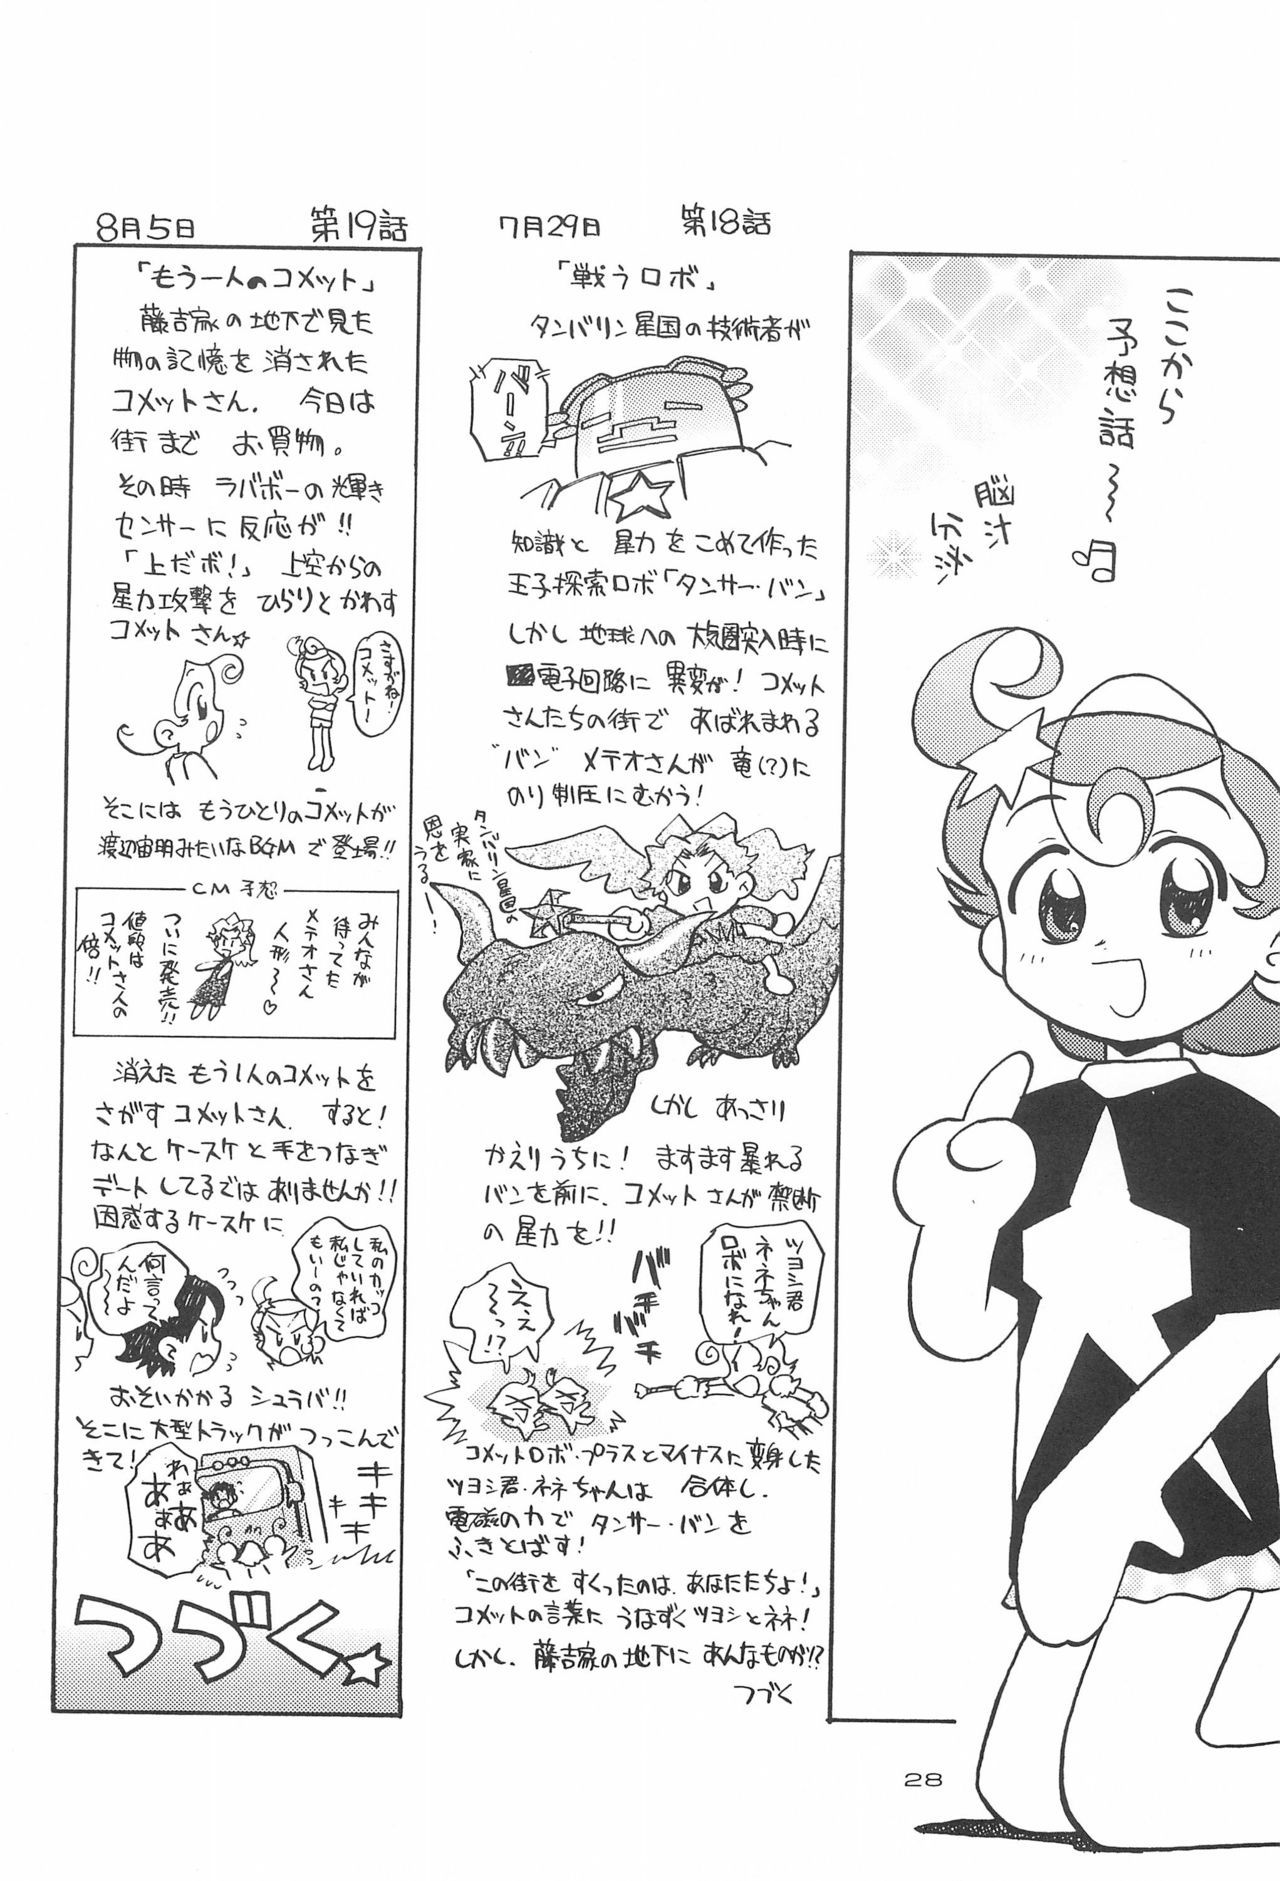 ここから
予想話〜〜♪
脳汁
分泌
7月29日 第18話
「戦うロボ」
タンバリン星国の技術者が
バーン!!
知識と 星力をこめて作った
王子探索ロボ「タンサー・バン」
しかし 地球への 大気圏突入時に
電子回路に 異変が! コメット
さんたちの街で あばれまわる
"バン" メテオさんが 竜(?)に
のり制圧にむかう!
タンバリン星国の
実家に
恩をうる〜!
しかし あっさり
かえりうちに! ますます暴れる
バンを前に、コメットさんが 禁断
の星力を!!
ツヨシ君
ネネちゃん
ロボになれ!
バチバチ
ええ
〜っ!?
コメットロボ・プラスとマイナスに変身した
ツヨシ君・ネネちゃんは 合体し、
電磁の力で タンサー・バンを
ふきとばす!
「この街を すくったのは、あなたたちよ!」
コメットの言葉に うなずくツヨシとネネ!
しかし、藤吉家の地下に あんなものが!?
つづく
8月5日 第19話
「もう一人のコメット」
藤吉家の地下で見た
物の記憶を消された
コメットさん、 今日は
街まで お買物。
その時 ラバボーの輝き
センサーに反応が!!
「上だボ!」 上空からの
星力攻撃を ひらりとかわす
コメットさん☆
さすがね!
コメットー
そこには もうひとりのコメットが
渡辺宙明みたいなBGMで登場!!
CM予想
みんなが
待ってた
メテオさん
人形〜〜♡
ついに発売!!
値段は
コメットさんの
倍!!
消えた もう1人のコメットを
さがすコメットさん、 すると!
なんと ケースケと手をつなぎ
デートしてるでは ありませんか!!
困惑するケースケに
私のカッコ
していれば
私じゃなくて
もいーの?
何言って
んだよ
〜〜
おそいかかる シュラバ!!
そこに大型トラックが つっこんで
きて!
キキキキ
わぁ
あぁ
あぁ
あ
つづく☆
28